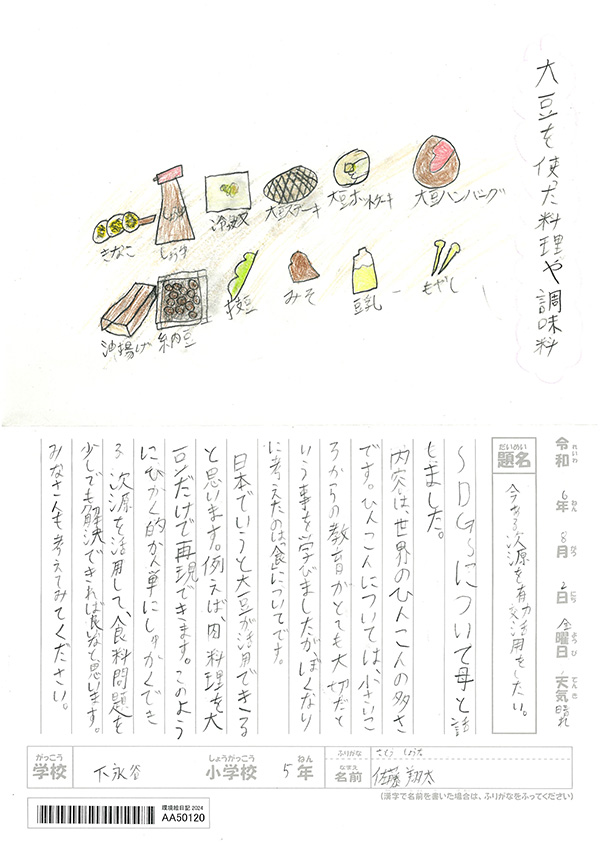 大豆を使った料理や調味料
きなこ
しょうゆ
しょうゆ
冷奴
大豆ステーキ
大豆ホットケーキ
大豆ハンバーグ
油揚げ
納豆
枝豆
みそ
豆乳
もやし
令和 れいわ 6年 ねん 8月 がつ 2日 にち 金曜日 ようび 天気 てんき 晴れ
だいめい
題名
今ある次源を有効活用をしたい。
SDGsについて母と話
しました。
内容は、世界のひんこん人の多さ
です。ひんこんについては、小さいこ
ろからの教育がとても大切だと
いう事を学びましたが、ぼくなり
に考えたのは"食"についてです。
日本でいうと大豆が活用できる
と思います。例えば、肉料理を大
豆だけで再現できます。このよう
にひかく的かん単にしゅかくでき
る次源を活用して、食料問題を
少しでも解決できれば良いなと思います。
みなさんも考えてみてください。
がっこう
学校
下永谷
しょうがっこう
小学校
5
ねん
年
ふりがな
さとう しょうた
なまえ
名前
佐藤 翔太
(漢字で名前を書いた場合は、ふりがなをふってください)
環境絵日記 2024
AA50120